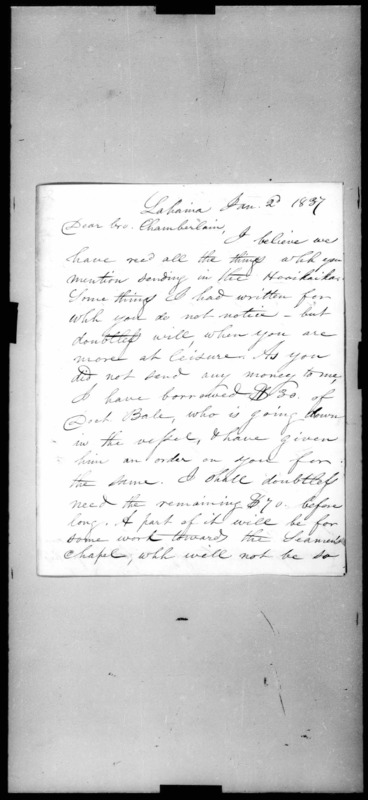 Lahaina Jan. 2d 1837
Dear bro. Chamberlain,
I believe we
have recd all the things whh you
mention sending in the Hooikaika.
Some things I had written for
whh you do not notice - but
doubtless will, when you are
more at leisure. As you
did not send any money to me,
I have borrowed $30. of
Doct. Bale, who is going down
in the vessel, & have given
him an order on you for
the same. I shall doubtless
need the remaining $70. before
long. A part of it will be for
some work towards the Seamen's
Chapel, whh will not be so